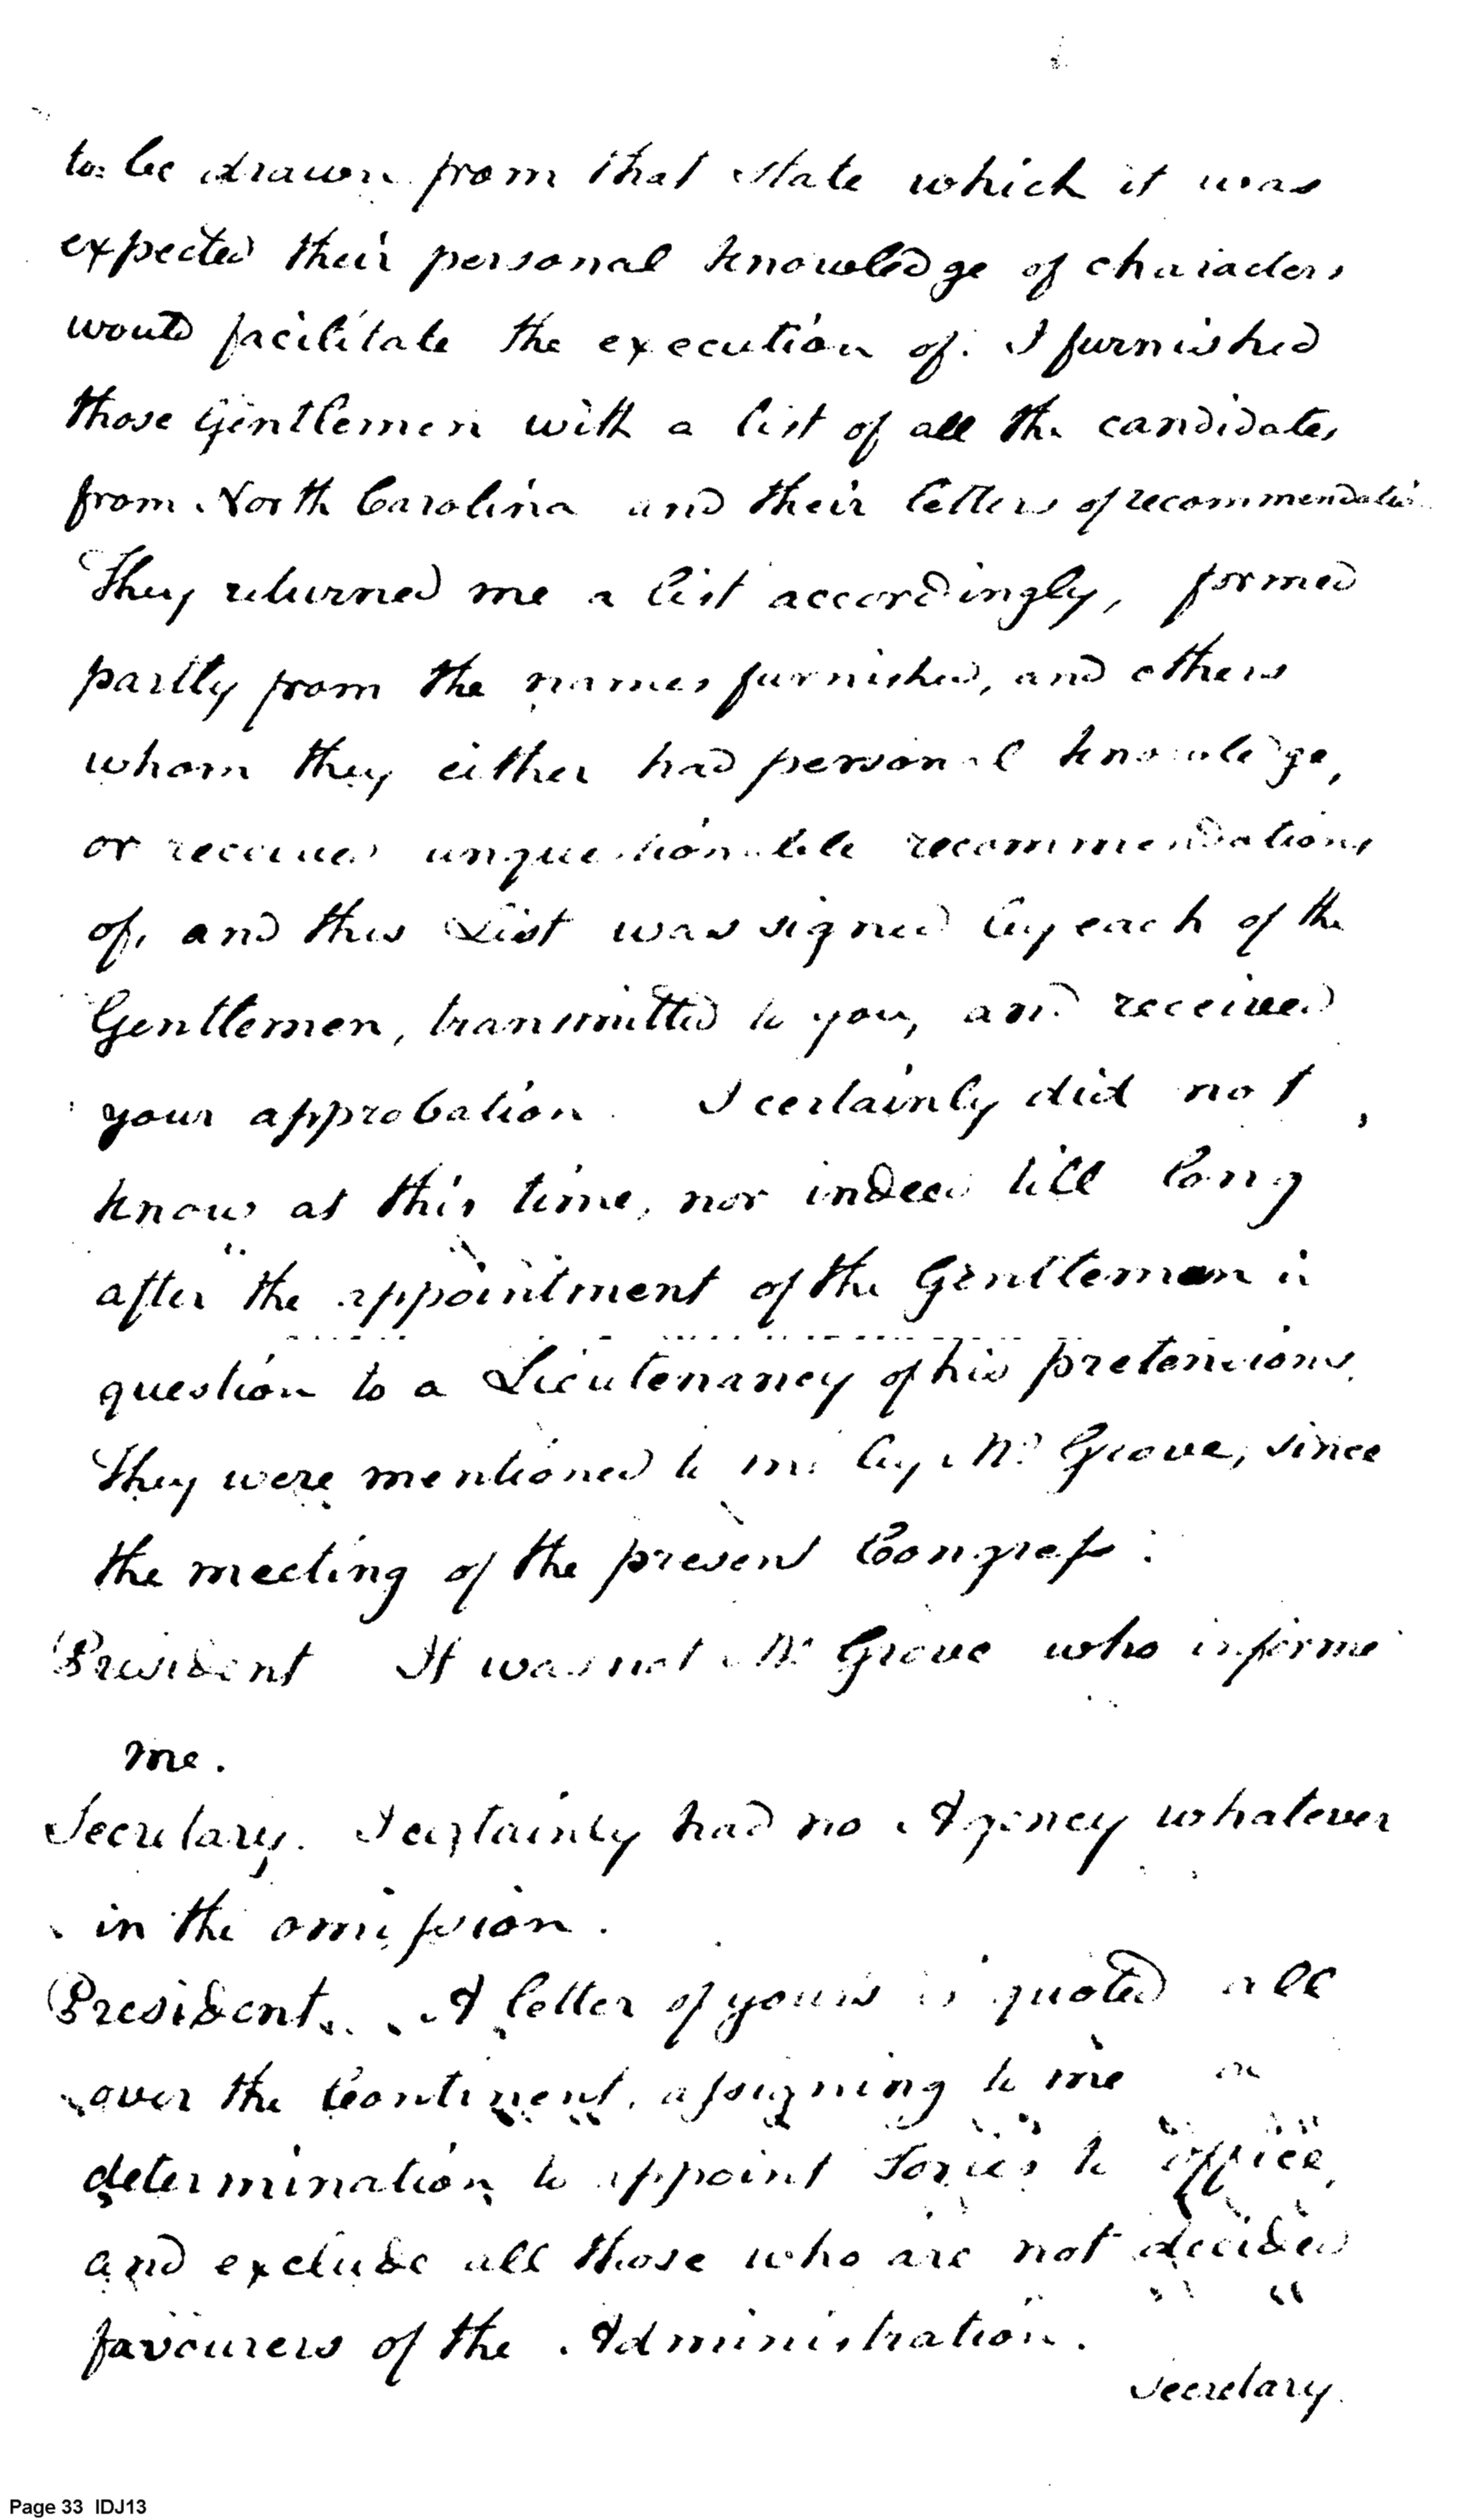 to be drawn from that State which it was
expected their personal knowledge of characters
would facilitate the execution of. I furnished
those Gentlemen with a list of all the candidates
from North Carolina and their letters of recommendation
They returned me a list accordingly, formed
partly from the names furnished, and others
whom they either had personal knowledge,
or received unquestionable recommendations
of, and this List was signed by each of the
Gentlemen, transmitted to you, and received
your approbation. I certainly did not
know at this time, nor indeed till long
after the appointment of the Gentleman in
question to a Lieutenancy of his pretensions.
They were mentioned to me by Mr Grove, since
the meeting of the present Congress.
President It was not Mr Grove who informed
me.
Secretary. I certainly had no Agency whatever
in the omission.
President. A letter of yours is quoted all
over the Continent, assigning to me a
determination to appoint Tories to office,
and exclude all those who are not decided
favourers of the Administration.
Secretary.
Page 33 IDJ13